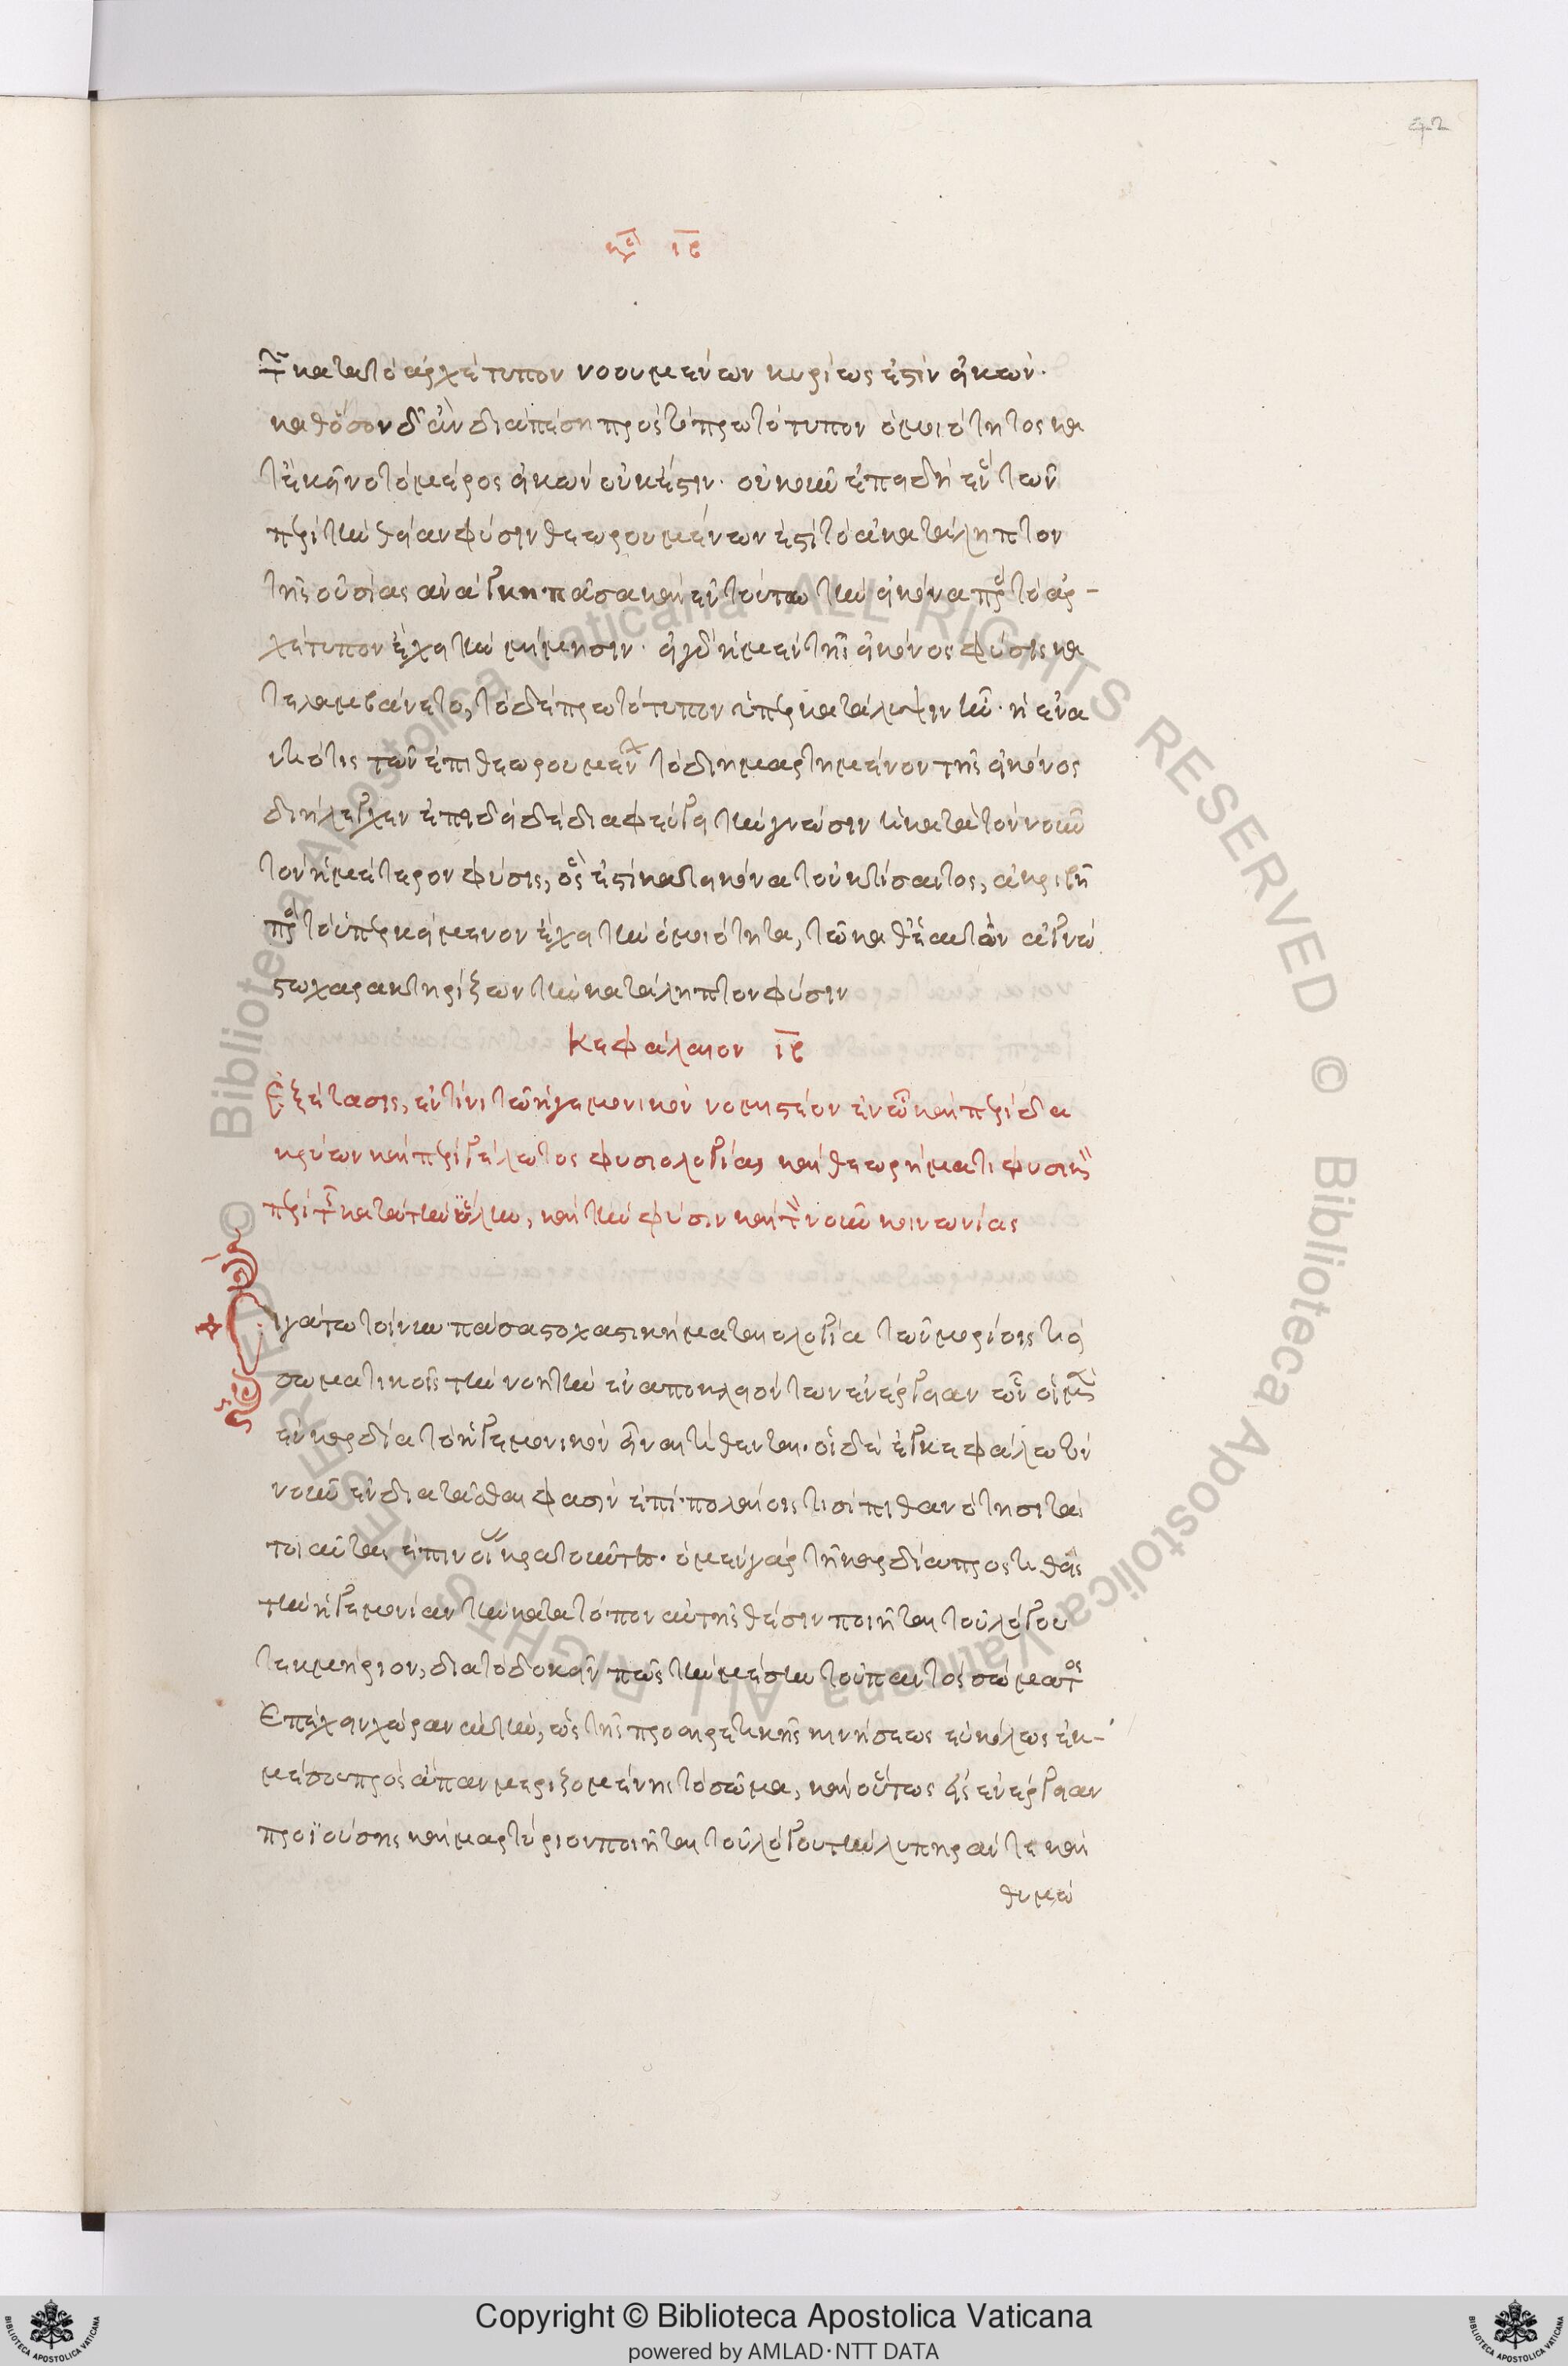 42
κεφ ιβ
τῶν κατὰ τὸ ἀρχέτυπον νοουμένων κυρίως ἐστὶν εἰκών·
καθόσον δ' ἂν διαπέση πρὸς τὸ πρωτότυπον ὁμοιότητος κα
τ' ἐκεῖνο τὸ μέρος εἰκὼν οὐκ ἔστιν· οὐκοῦν ἐπειδὴ ἓν τῶν
περὶ τὴν θείαν φύσιν θεωρουμένων ἐστὶ τὸ ἀκατάληπτον
τῆς οὐσίας ἀνάγκη πᾶσα καὶ ἐν τούτω τὴν εἰκόνα πρὸς τὸ ἀρ-
χέτυπον ἔχειν τὴν μίμησιν· εἰ γὰρ ἡ μὲν τῆς εἰκόνος φύσις κα
τελαμβάνετο, τὸ δὲ πρωτότυπον ὑπὲρ κατάληψιν ἦν· ἡ ἐνα
ντιότης τῶν ἐπιθεωρουμένων τὸ διημαρτημένον τῆς εἰκόνος
διήλεγχεν ἐπειδὴ δὲ διαφεύγει τὴν γνῶσιν ἡ κατὰ τὸν νοῦν
τὸν ἡμέτερον φύσις, ὅς ἐστι κατ' εἰκόνα τοῦ κτίσαντος, ἀκριβῆ
πρὸς τὸ ὑπερκείμενον ἔχει τὴν ὁμοιότητα, τῶ καθ' ἑαυτὸν ἀγνώ
στω χαρακτηρίζων τὴν ἀκατάληπτον φύσιν
Κεφάλαιον ιβ
Ἐξέτασις, ἐν τίνι τὸ ἡγεμονικὸν νομιστέον ἐν ὧ καὶ περὶ δα
κρύων καὶ περὶ γέλωτος φυσιολογίας καὶ θεώρημά τι φυσικὸν
περὶ τῆς κατὰ τὴν ὕλην, καὶ τὴν φύσιν καὶ τὸν νοῦν κοινωνίας
Σιγάτω τοίνυν πᾶσα στοχαστικὴ ματαιολογία τῶν μορίοις τισὶ
σωματικοῖς τὴν νοητὴν ἐναποκλειόντων ἐνέργειαν ὧν οἱ μὲν
ἐν καρδία τὸ ἡγεμονικὸν εἶναι τίθενται· οἱ δὲ ἐγκεφάλω τὸν
νοῦν ἐνδιαιτᾶσθαι φασὶν ἐπιπολαίοις τισὶ πιθανότησι τὰς
τοιαύτας ἐπινοίας κρατοῦντες· ὁ μὲν γὰρ τῆ καρδία προστιθεὶς
τὴν ἡγεμονίαν τὴν κατὰ τόπον αὐτῆς θέσιν ποιεῖται τοῦ λόγου
τεκμήριον, διὰ τὸ δοκεῖν πῶς τὴν μέσην τοῦ παντὸς σώματος
ἐπέχειν χώραν αὐτὴν, ὡς τῆς προαιρετικῆς κινήσεως εὐκόλως ἐκ-
μέσου πρὸς ἅπαν μεριζομένης τὸ σῶμα, καὶ οὕτως εἰς ἐνέργειαν
προϊούσης καὶ μαρτύριον ποιεῖται τοῦ λόγου τὴν λυπηράν τε καὶ
θυμώ
Copyright © Biblioteca Apostolica Vaticana
powered by AMLAD·NTT DATA